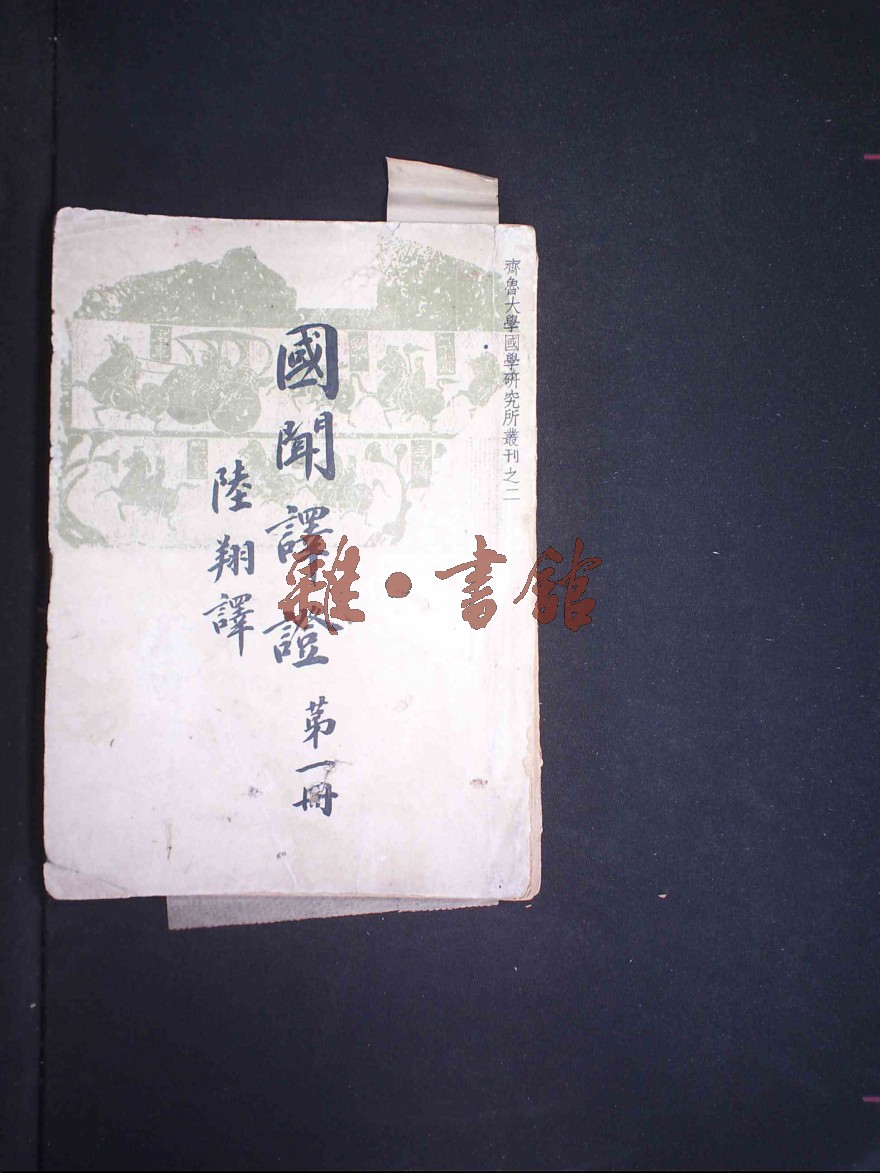 齊魯大學國學研究所叢刊之二
國聞譯證 第一冊
陸翔譯
雜•書館